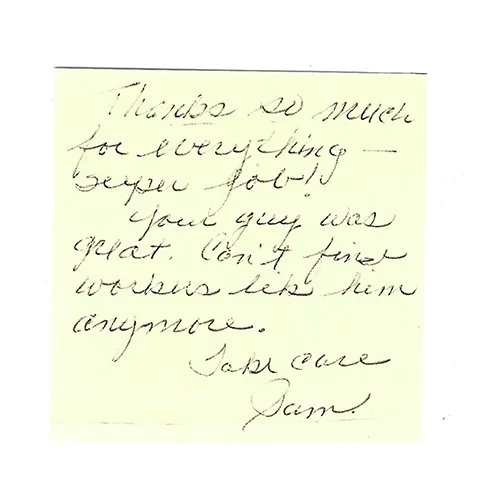 Thanks so much
for everything —
super job!
Your guy was
great. Can't find
workers like him
anymore.
Take care
Sam.